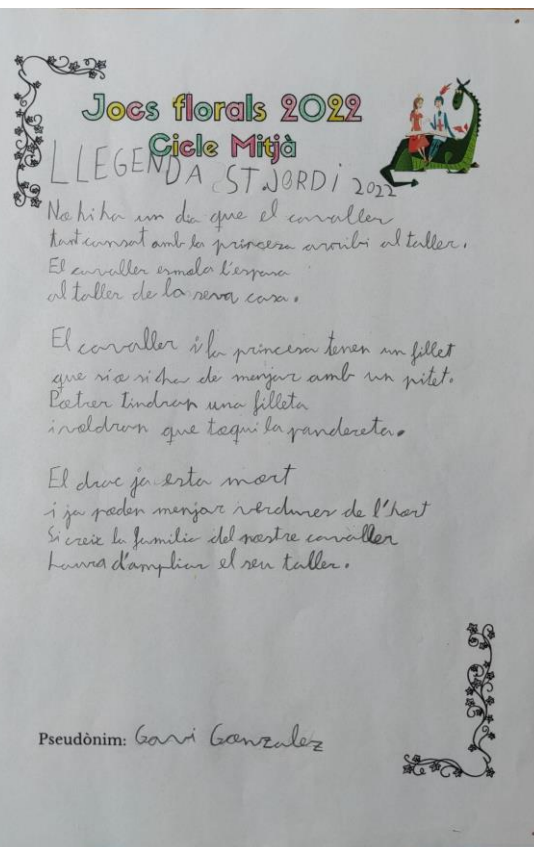 Jocs florals 2022
Cicle Mitjà
LLEGENDA ST.JORDI 2022
No hi ha un dia que el cavaller
tant cansat amb la princesa arribi al taller.
El cavaller esmola l'espasa
al taller de la seva casa.
El cavaller i la princesa tenen un fillet
que si ha de menjar amb un pitet.
Potser tindran una filleta
i voldran que toqui la pandereta.
El drac ja esta mort
i ja poden menjar verdures de l'hort
Si creix la familia del nostre cavaller
haura d'ampliar el seu taller.
Pseudònim: Gavi Gonzalez